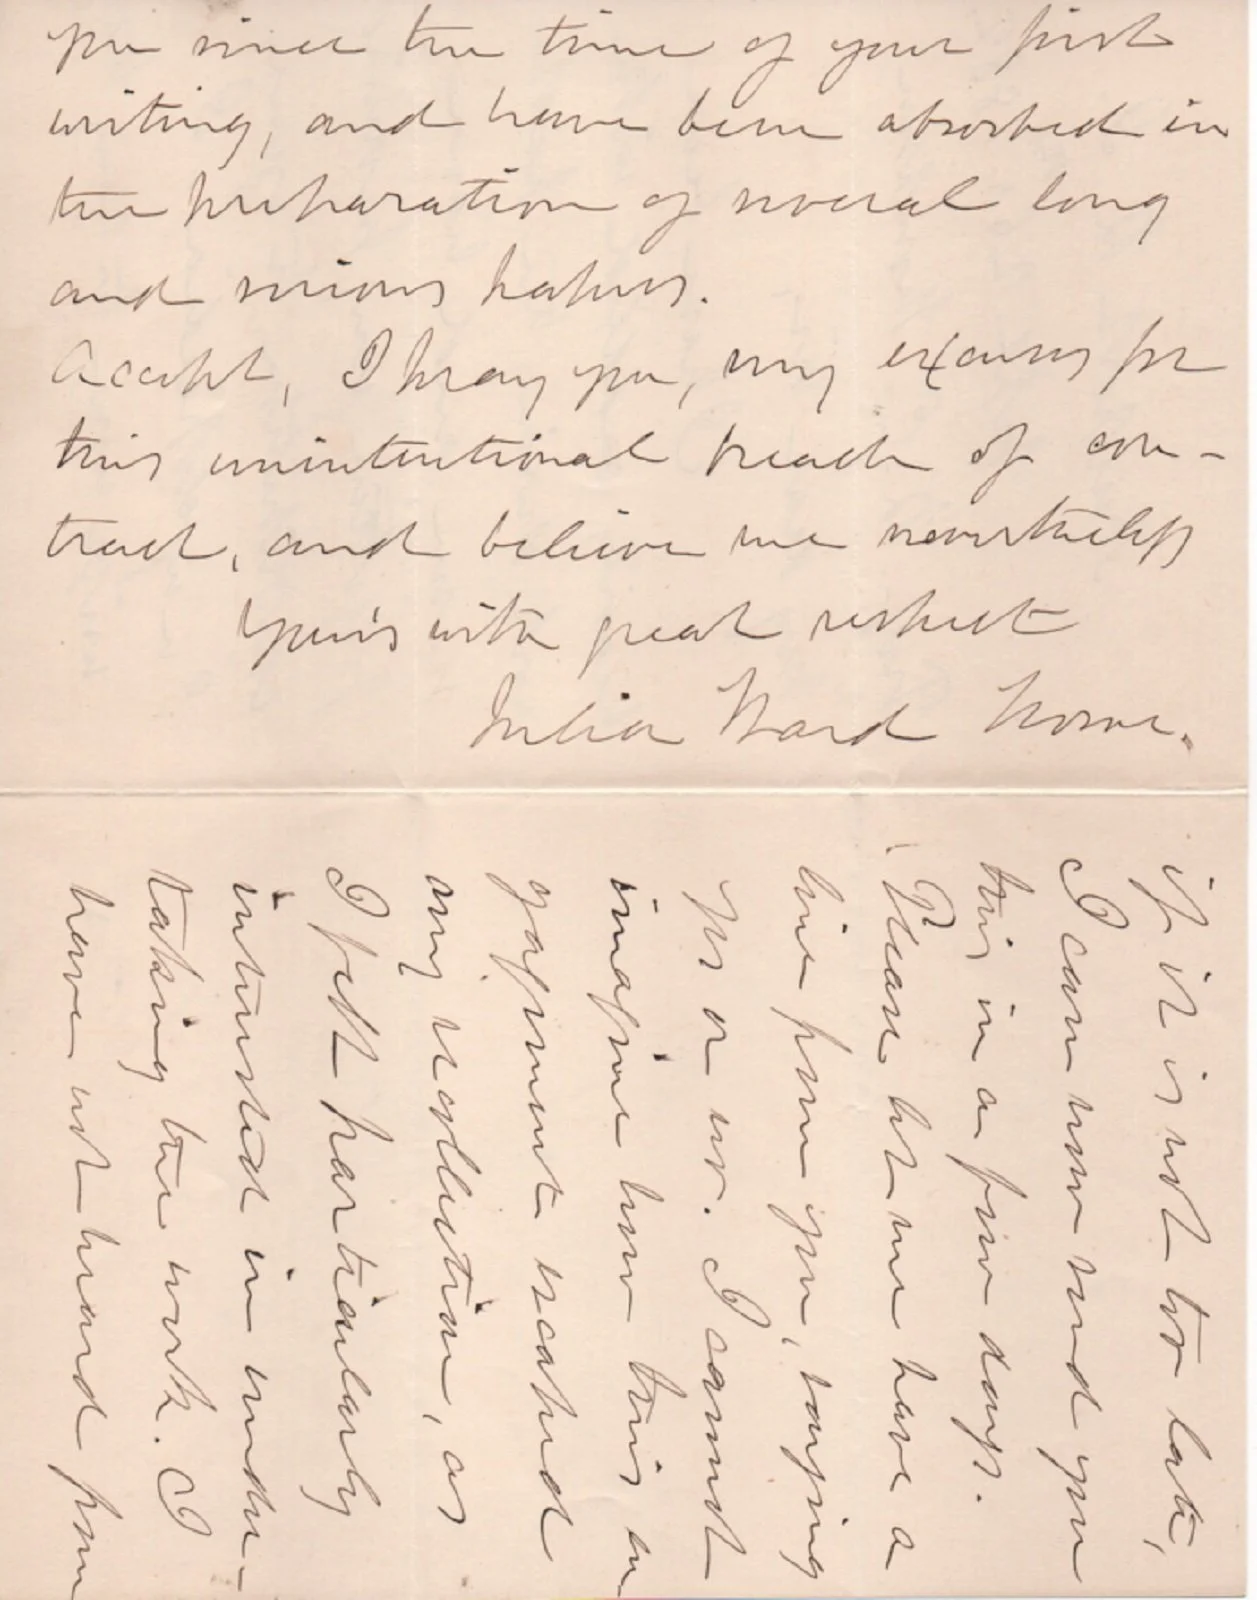 if it is not too late,
I can now send you
this in a few days.
Please let me have a
line from you, saying
yes or no. I cannot
imagine how this en
gagement escaped
my recollection, as
I felt particularly
interested in under-
taking the work. I
have not heard from
you since the time of your first
writing, and have been absorbed in
the preparation of several long
and serious papers.
Accept, I pray you, my excuses for
this unintentional breach of con-
tract, and believe me nevertheless
your's with great respect
Julia Ward Howe.